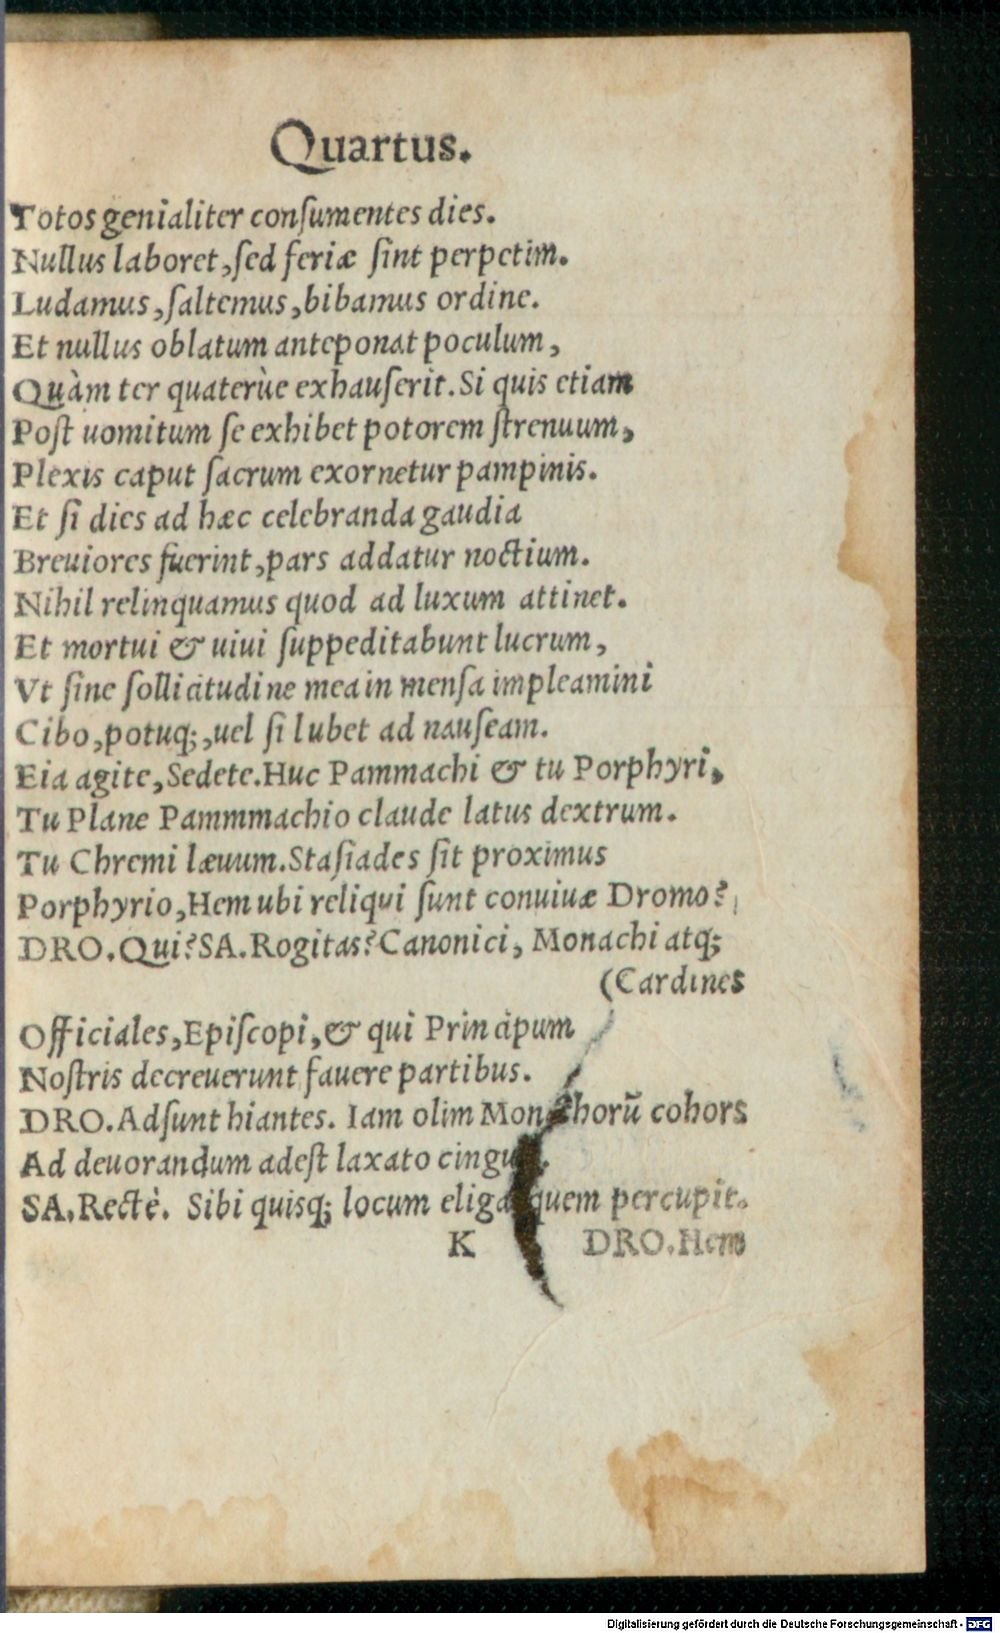 Quartus.
Totos genialiter conſumentes dies.
Nullus laboret, ſed feriæ ſint perpetim.
Ludamus, ſaltemus, bibamus ordine.
Et nullus oblatum anteponat poculum,
Quàm ter quaterùe exhauſerit. Si quis etiam
Poſt uomitum ſe exhibet potorem ſtrenuum,
Plexis caput ſacrum exornetur pampinis.
Et ſi dies ad hæc celebranda gaudia
Breuiores fuerint, pars addatur noctium.
Nihil relinquamus quod ad luxum attinet.
Et mortui & uiui ſuppeditabunt lucrum,
Vt ſine ſollicitudine mea in menſa impleamini
Cibo, potuq;, uel ſi lubet ad nauſeam.
Eia agite, Sedete. Huc Pammachi & tu Porphyri,
Tu Plane Pammmachio claude latus dextrum.
Tu Chremi læuum. Staſiades ſit proximus
Porphyrio, Hem ubi reliqui ſunt conuiuæ Dromo?
DRO. Qui? SA. Rogitas? Canonici, Monachi atq;
(Cardines
Officiales, Epiſcopi, & qui Principum
Noſtris decreuerunt fauere partibus.
DRO. Adſunt hiantes. Iam olim Monachorũ cohors
Ad deuorandum adeſt laxato
SA. Rectè. Sibi quisq; locum quem percupit.
K DRO. Hem
Digitalisierung gefördert durch die Deutsche Forschungsgemeinschaft - DFG